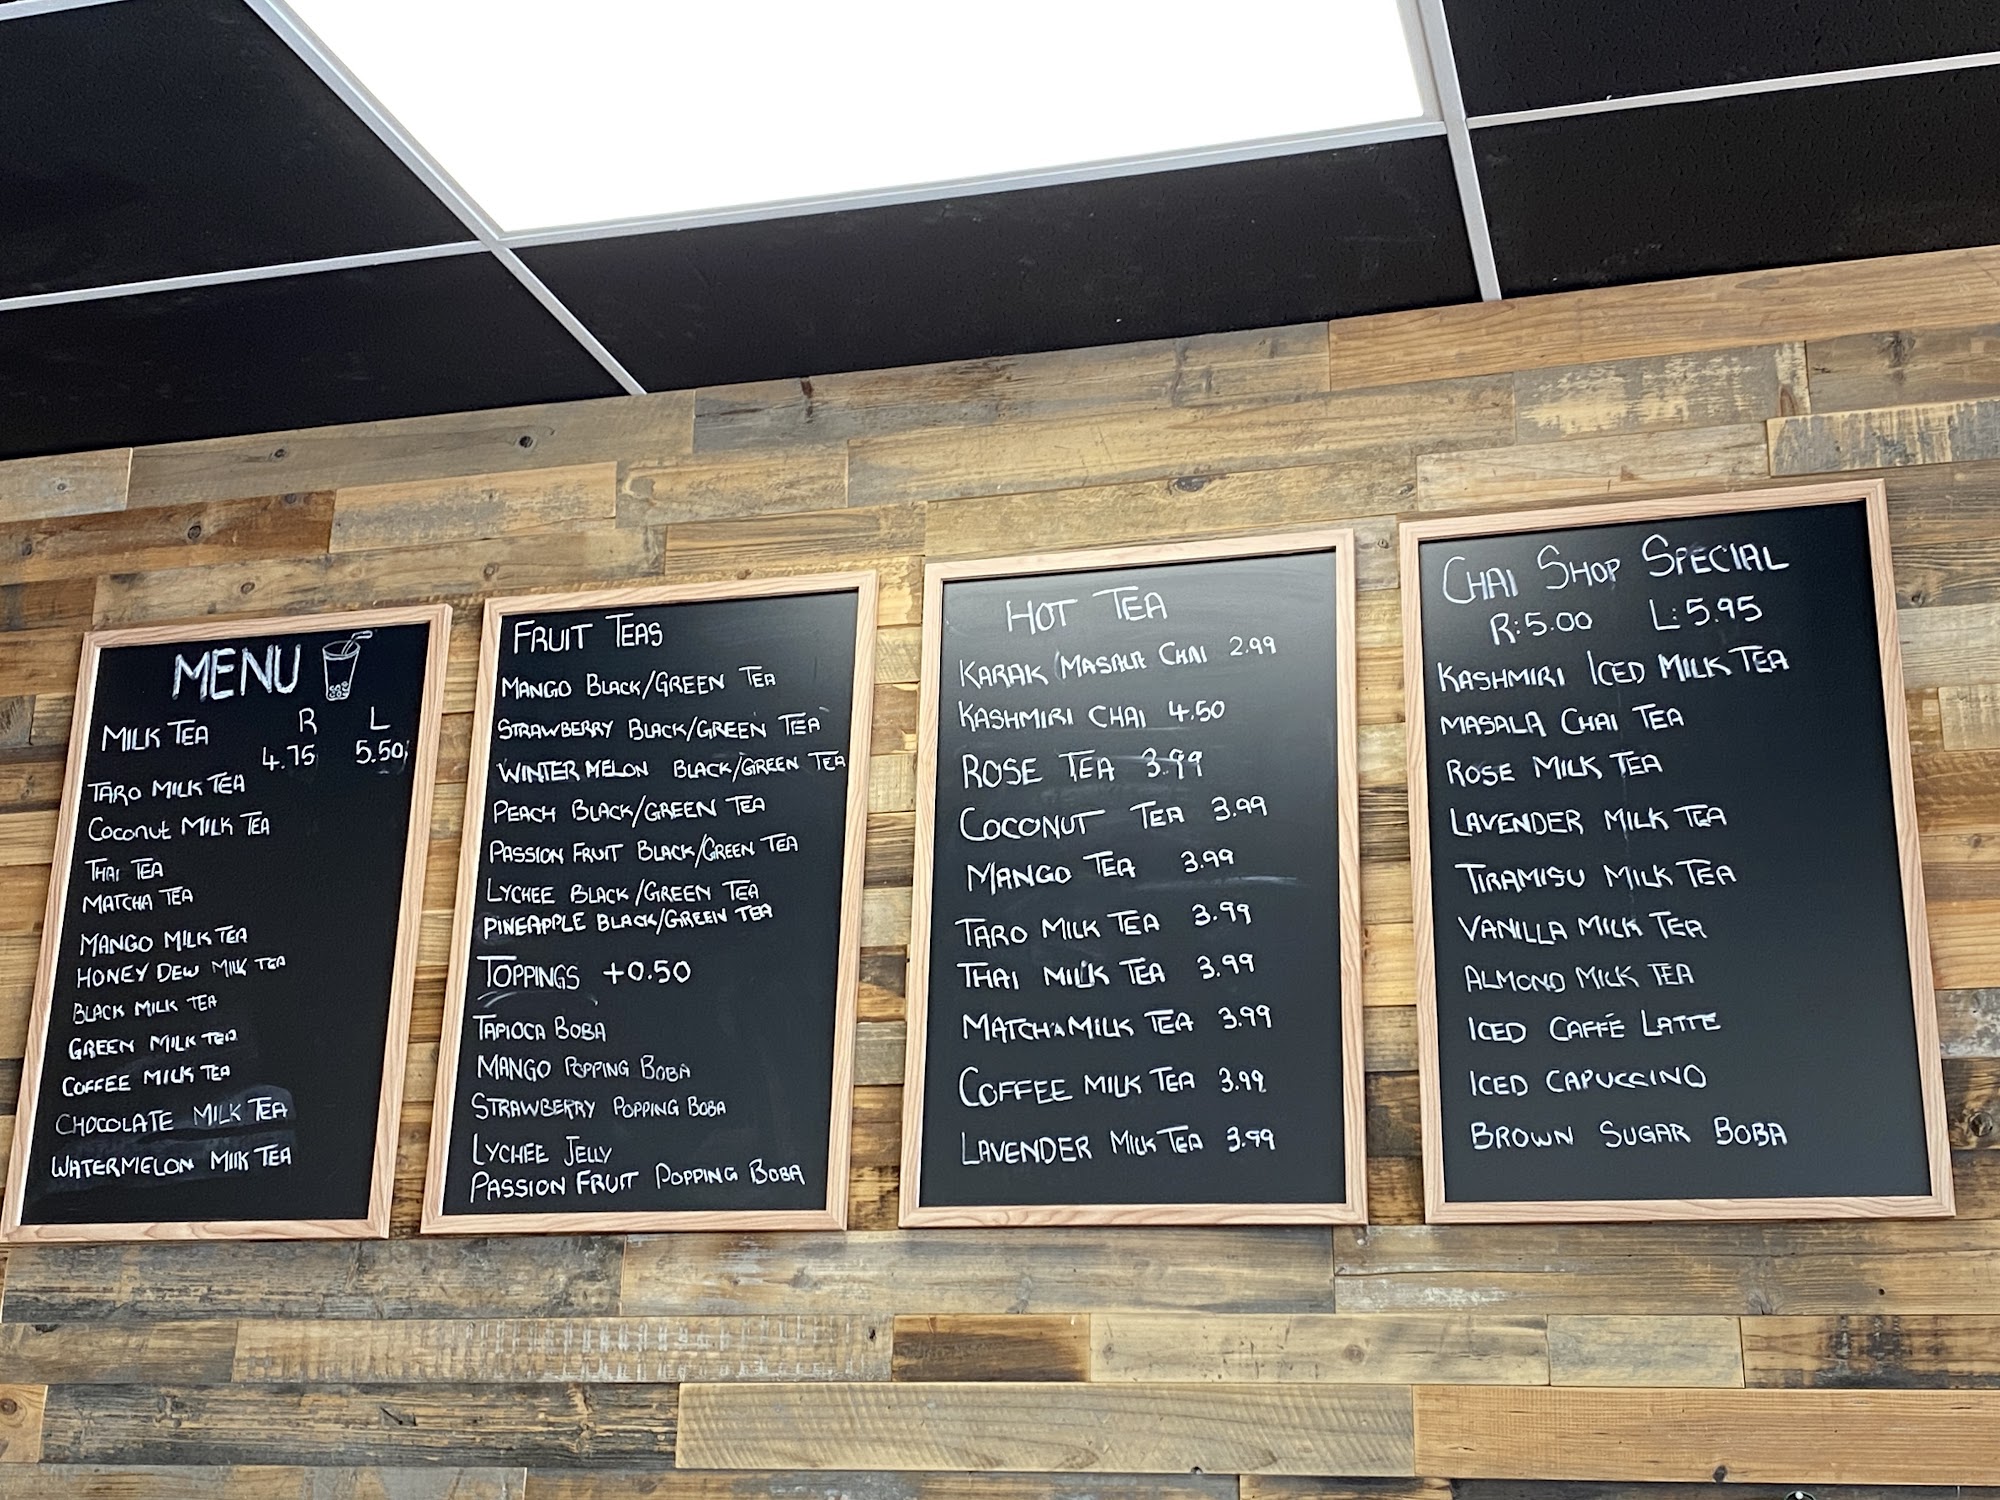 MENU
MILK TEA R L
4.75 5.50
TARO MILK TEA
COCONUT MILK TEA
THAI TEA
MATCHA TEA
MANGO MILK TEA
HONEY DEW MILK TEA
BLACK MILK TEA
GREEN MILK TEA
COFFEE MILK TEA
CHOCOLATE MILK TEA
WATERMELON MILK TEA
FRUIT TEAS
MANGO BLACK/GREEN TEA
STRAWBERRY BLACK/GREEN TEA
WINTER MELON BLACK/GREEN TEA
PEACH BLACK/GREEN TEA
PASSION FRUIT BLACK/GREEN TEA
LYCHEE BLACK/GREEN TEA
PINEAPPLE BLACK/GREEN TEA
TOPPINGS +0.50
TAPIOCA BOBA
MANGO POPPING BOBA
STRAWBERRY POPPING BOBA
LYCHEE JELLY
PASSION FRUIT POPPING BOBA
HOT TEA
KARAK MASALA CHAI 2.99
KASHMIRI CHAI 4.50
ROSE TEA 3.99
COCONUT TEA 3.99
MANGO TEA 3.99
TARO MILK TEA 3.99
THAI MILK TEA 3.99
MATCHA MILK TEA 3.99
COFFEE MILK TEA 3.99
LAVENDER MILK TEA 3.99
CHAI SHOP SPECIAL
R:5.00 L:5.95
KASHMIRI ICED MILK TEA
MASALA CHAI TEA
ROSE MILK TEA
LAVENDER MILK TEA
TIRAMISU MILK TEA
VANILLA MILK TEA
ALMOND MILK TEA
ICED CAFFÉ LATTE
ICED CAPUCCINO
BROWN SUGAR BOBA